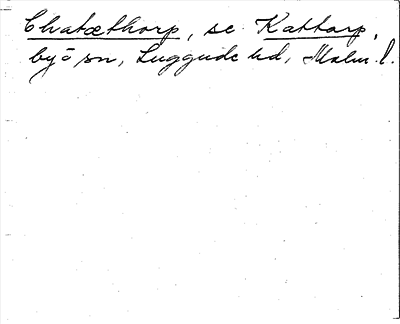 Chatæthorp, se Kattarp,
by o sn, Luggude hd, Malm. l.